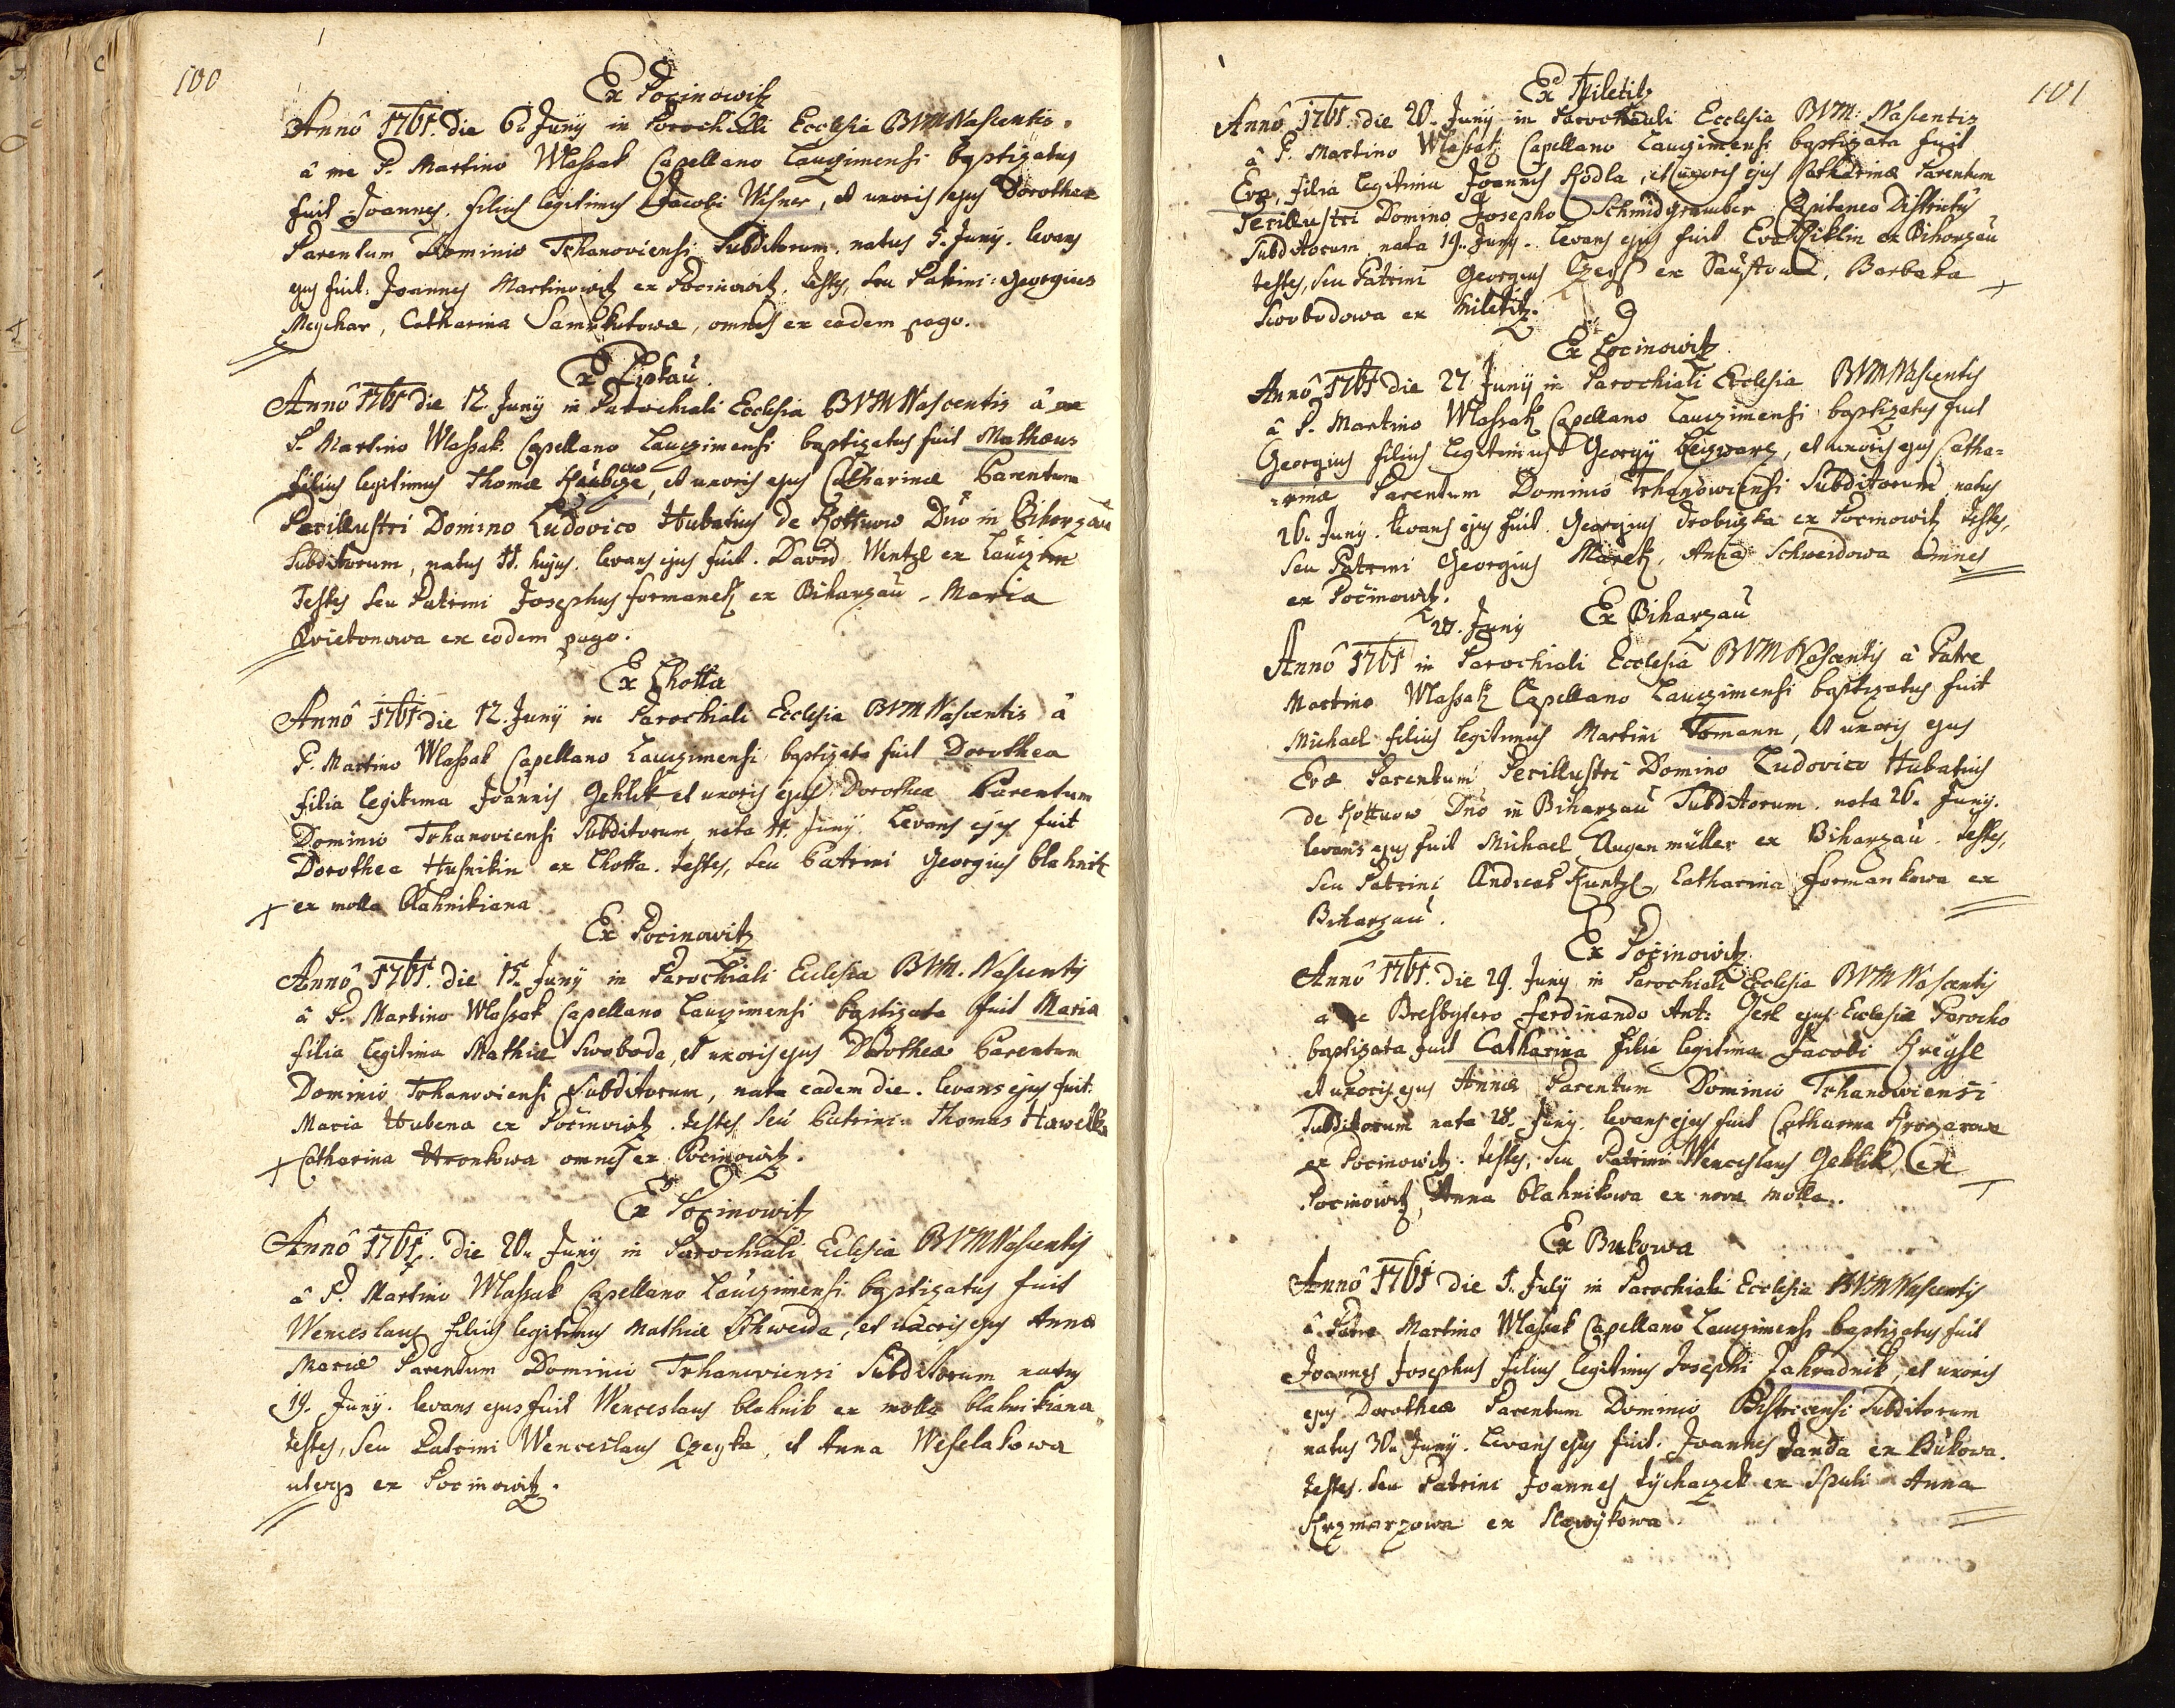 100
Ex Pocinowitz
Annô 1761. Die 6. Junÿ in Parochiali Ecclesia BVM Nascentis.
â me P. Martino Wlassak Capellano Lauczimensi baptizatus
fuit Joannes. filius legitimus Jacobi Wisner, et uxoris ejus Dorotheæ
Parentum Dominio Trhanoviensi Subditorum. natus 5. Junÿ. levans
ejus fuit: Joannes Martinowitz ex Pocinowitz. testes, seu Patrini: Georgius
Meychar, Catharina Samektowa, omnes ex eadem pago.
Ex Lipkau
Annô 1761 die 12. Junÿ in Parochiali Ecclesia BVM Nascentis â me
P. Martino Wlassak. Capellano Lauczimensi baptizatus fuit Mathæus
filius legitimus Thomæ, et uxoris ejus Catharinæ Parentum
Perillustri Domino Ludovico Hubatius de Kottnow Dnô in Biharzau
Subditorum, natus 11. hujus. levans ejus fuit. David Wentzl ex Lauczim
Testes seu Patrini Josephus Formanek ex Biharzau, Maria
Kvietonowa ex eodem pago.
Ex Lhotta
Annô 1761 die 12. Junÿ in Parochiali Ecclesia BVM Nascentis â
P. Martino Wlassak Capellano Lauczimensi baptizata fuit Dorothea
filia legitima Joannis Gehlik et uxoris ejus Dorotheæ Parentum
Dominio Trhanoviensi Subditorum nata 11. Junÿ. Levans ejus fuit
Dorothea Husnikin ex Lhotta. testes, seu Patrini Georgius blahnik
ex molla blahnikiana
Ex Pocinowitz
Annô 1761. die 15. Junÿ in Parochiali Ecclesia BVM. Nascentis
â P. Martino Wlassak Capellano Lauczimensi baptizata fuit Maria
filia legitima Mathiæ Swoboda, et uxoris ejus Dorotheæ Parentum
Dominio Trhanoviensi Subditorum, nata eadem die. levans ejus fuit.
Maria Hubena ex Pocinowitz. testes seu Patrini Thomas Hawelka
Catharina Hronkowa omnes ex Pocinowitz.
Ex Pocinowitz
Annô 1761. Die 20. Junÿ in Parochiali Eclesia BVM Nascentis
â P. Martino Wlassak Capellano Lauczimensi baptizatus fuit
Wenceslaus filius legitimus Mathiæ Schweda, et uxoris ejus Annæ
Mariæ Parentum Dominio Trhanoviensi Subditorum natus
19. Junÿ. levans ejus fuit Wenceslaus blahnik ex molla blahnikiana
testes, seu Patrini Wenceslaus Czeyka, et Anna Weselakowa
uterqs ex Pocinowitz.
101
Ex Miletitz
Annô 1761. die 20. Junÿ in Parochiali Ecclesia BVM: Nascentis
â P. Martino Wlassak Capellano Lauczimensi baptizata fuit
Eva, filia legitima Joannis Kodla, et uxoris ejus Catharinæ Parentum
Perillustri Domino Josepho Schmidgrauber Capitaneo Districtûs
Subditorum nata 19. Junÿ. levans ejus fuit Eva Miklin ex Biharzau
testes, seu Patrini Georgius, Barbara
Swobodowa ex Miletitz.
Ex Pocinowitz
Annô 1761 Die 27 Junÿ in Parochiali Ecclesia BVM Nascentis
â P. Martino Wlassak Capellano Lauczimensi baptizatus fuit
Georgius filius Legitimus Georgÿ, et uxoris ejus Catha=
=rinæ Parentum Dominio Trhanowiensi Subditorum natus
26. Junÿ. levans ejus fuit. Georgius Drobiczka ex Pocinowitz testes,
seu Patrini Georgius Marek, Anna Schweidowa omnes
ex Pocinowitz.
27. Junÿ Ex Biharzau
Annô 1761 in Parochiali Ecclesia BVM Nascentis â Patre
Martino Wlassak Capellano Lauczimensi baptizatus fuit
Michael filius Legitimus Martini Tomann, et uxoris ejus
Evæ Parentum Perillustri Domino Ludovico Hubatius
de Kottnow Dnô in Biharzau Subditorum. nata 26. Junÿ.
levans ejus fuit Michael Augenmüller ex Biharzau. testes,
seu Patrini Andreas Kuntzl, Catharina formankowa ex
Biharzau.
Ex Pocinowitz
Annô 1761. Die 29. Junÿ in Parochiali Ecclesia BVM Nascentis
a me Presbytero Ferdinando Ant: Gerl ejus Ecclesiæ Parocho
baptizata fuit Catharina filia legitima Jacobi Kreysl
et uxoris ejus Annæ Parentum Dominio Trhanowiensi
Subditorum nata 28. Junÿ. levans ejus fuit Catharina
ex Pocinowitz. testes, seu Patrini Wenceslaus Gehlik ex
Pocinowitz, Anna blahnikowa ex nova molla.
Ex Bukowa
Annô 1761 die 1. Julÿ in Parochiali Ecclesia BVM Nascentis
â Patre Martino Wlassak Capellano Lauczimensi baptizatus fuit
Joannes Josephus filius legitimus Josephi Zahradnik, et uxoris
ejus Dorotheæ Parentum Dominio Bistricensi Subditorum
natus 30. Junÿ. Levans ejus fuit. Joannes Janda ex Bukowa.
testes. seu Patrini Joannes tychaczek ex Spuli Anna
Krzmarzowa ex Slawikowa